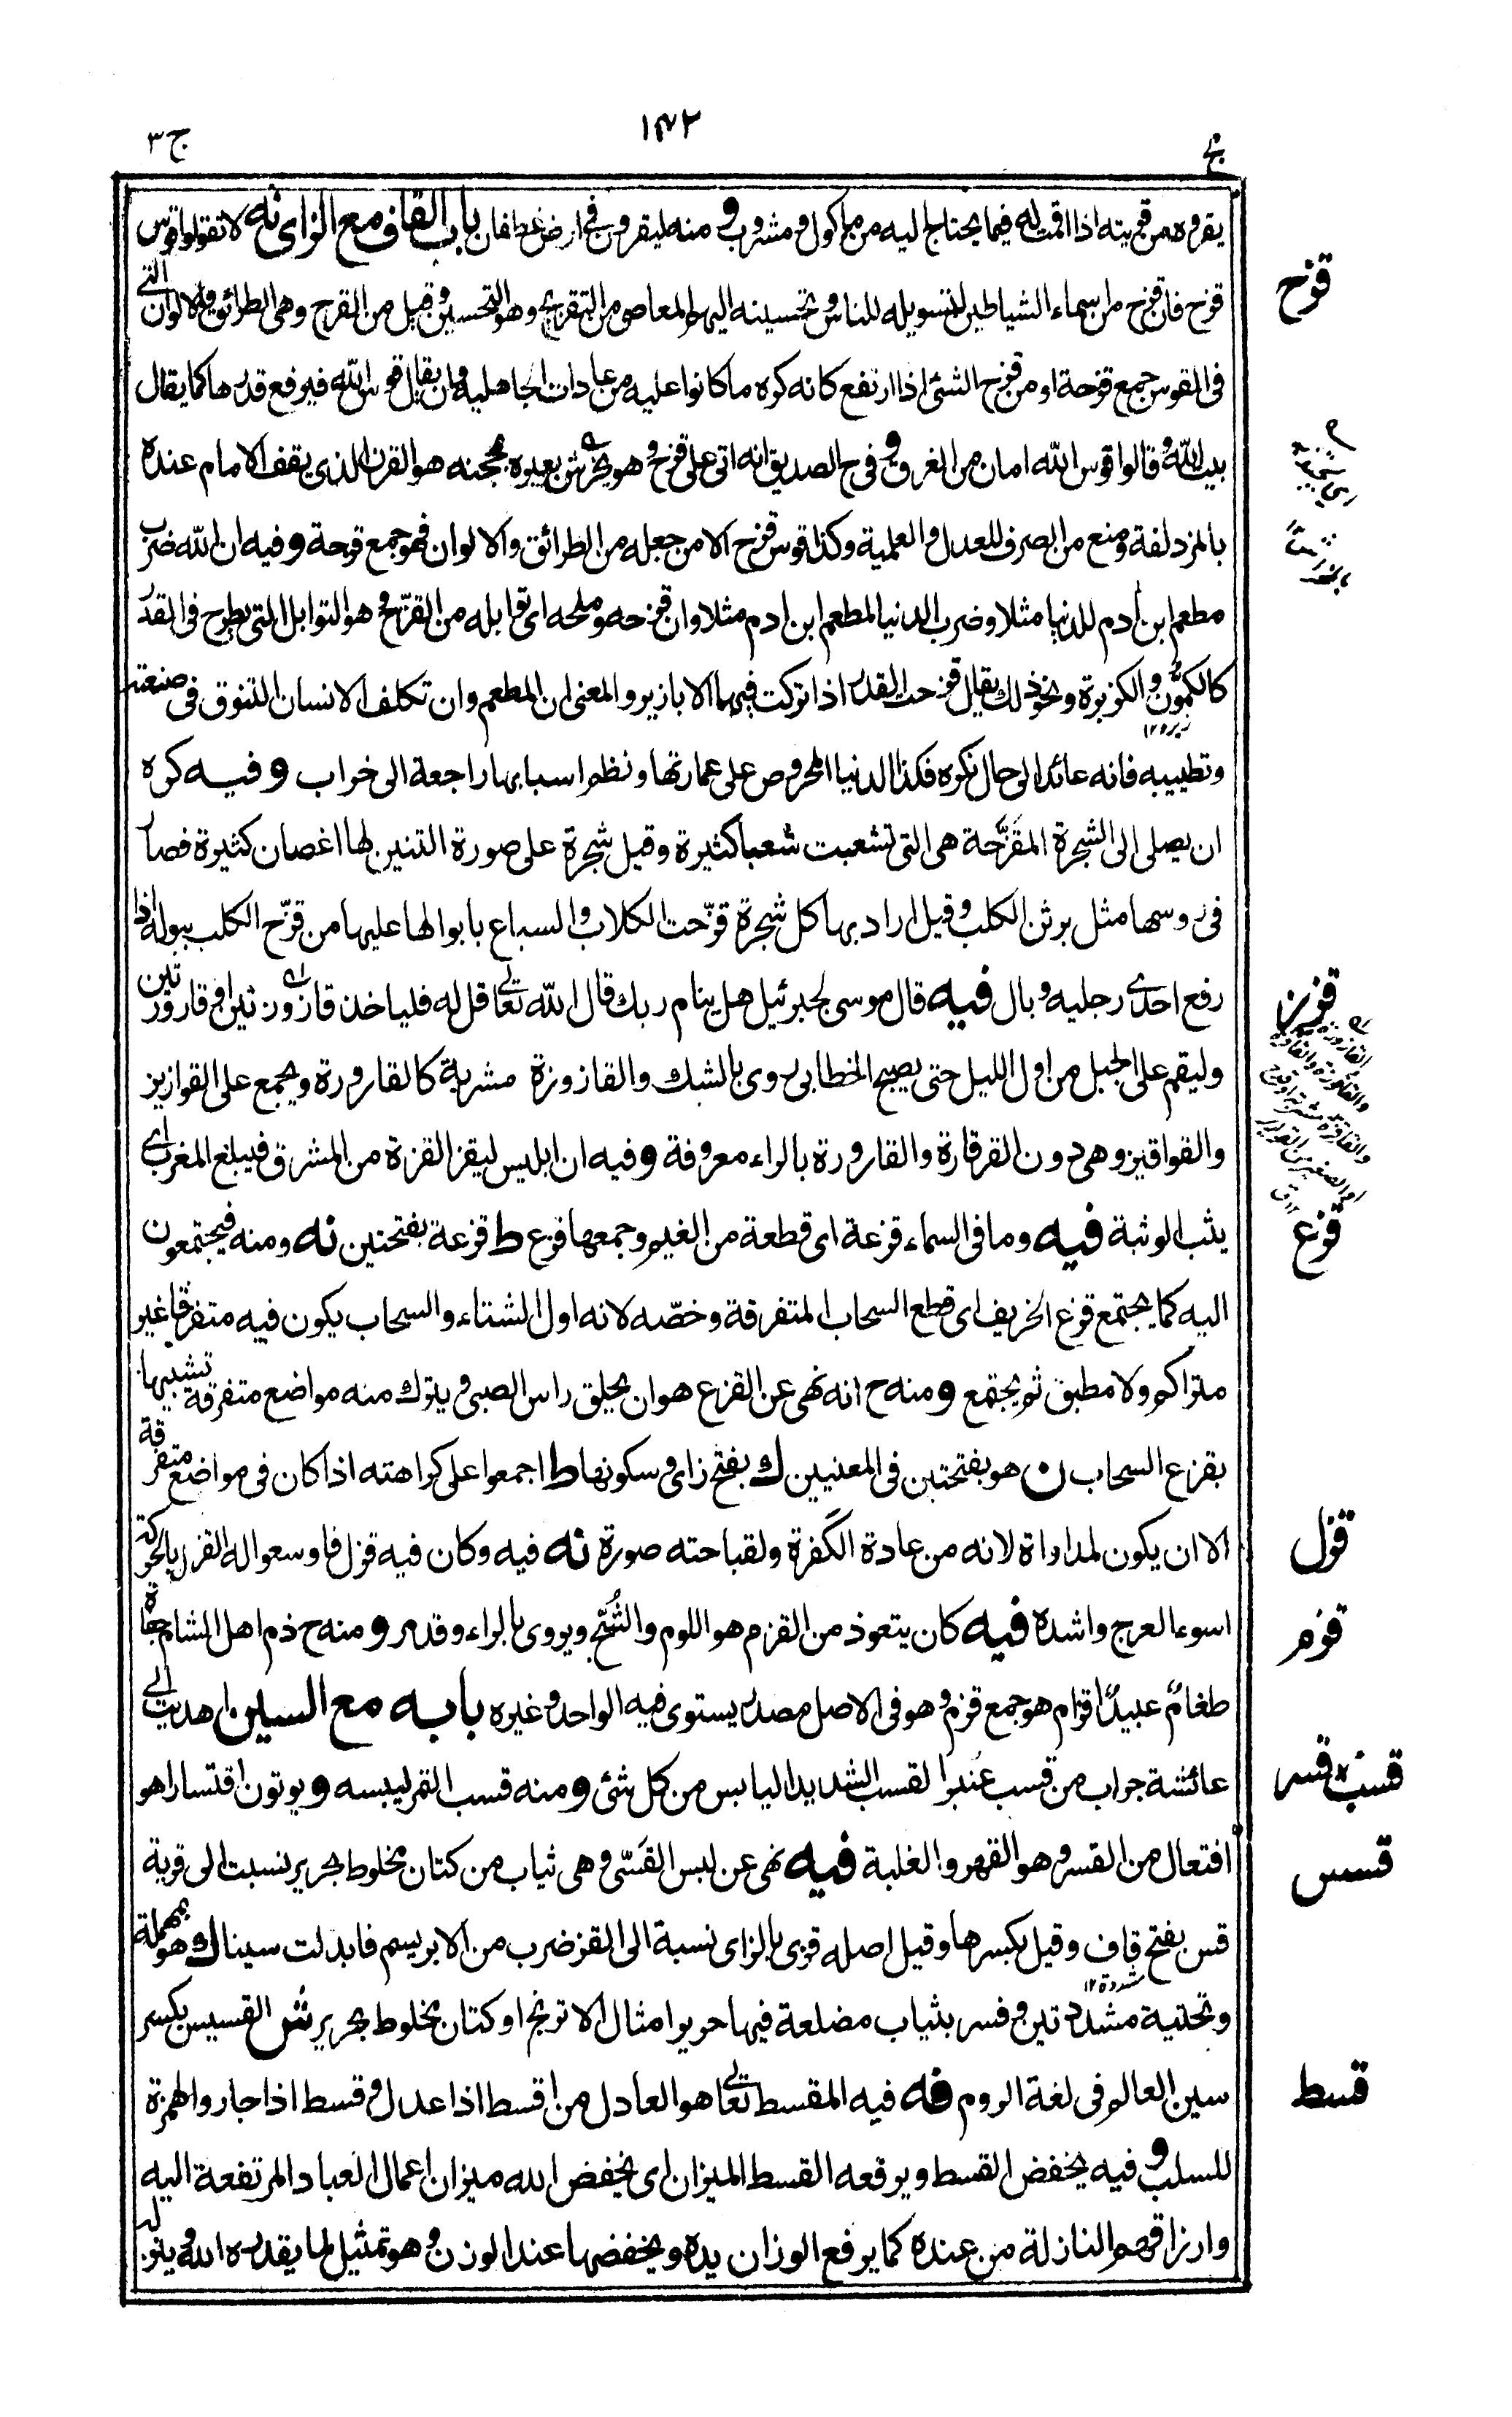 ج ٣
١٤٢
يقروه من قريته اذا اقمت له فيما يحتاج اليه من ماكول ومشروب و منه ليقرون في ارض غطفان باب القاف مع الزاى نه لا تقولوا قوس
قزح فان قزح من اسماء الشياطين لتسويله للناس وتحسينه اليهم المعاصى من التقزيح وهو التحسين وقيل من القزح وهى الطرائق والالوان التى
فى القوس جمع قزحة او من قزح الشئ اذا ارتفع كانه كره ما كانوا عليه من عادات الجاهلية وان يقال قوس الله فيرفع قدرها كما يقال
بيت الله وقالوا قوس الله امان من الغرق و فى ح الصديق انه اتى على قزح وهو يخرش بعيره بمحجنه هو القرن الذى يقف الامام عنده
بالمزدلفة ومنع من الصرف للعدل والعلمية وكذا قوس قزح الا من جعله من الطرائق والالوان فهو جمع قزحة و فيه ان الله ضرب
مطعم ابن ادم للدنيا مثلا وضرب الدنيا لمطعم ابن ادم مثلا وان قزحه وملحه اى توابله من القزح وهو التوابل التى يطرح فى القدر
كالكمون والكزبرة ونحو ذلك يقال قزحت القدر اذا تركت فيها الابازير والمعنى ان المطعم وان تكلف الانسان التنوق فى صنعته
وتطييبه فانه عائد الى حال نكره فكذا الدنيا المحروص على عمارتها ونظم اسبابها راجعة الى خراب و فيه كره
ان يصلى الى الشجرة المقزّحة هى التى تشعبت شعبا كثيرة وقيل شجرة على صورة التنين لها اغصان كثيرة قصار
فى روسها مثل برثن الكلب وقيل اراد بها كل شجرة قزّحت الكلاب والسباع بابوالها عليها من قزّح الكلب ببوله اذا
رفع احدى رجليه وبال فيه قال موسى لجبرئيل هل ينام ربك قال الله تعالى قل له فلياخذ قازوزتين او قارورتين
وليقم على الجبل من اول الليل حتى يصبح الخطابى روى بالشك والقازوزة مشربة كالقارورة ويجمع على القوازيز
والقواقيز وهى دون القرقارة والقارورة بالراء معروفة و فيه ان ابليس ليقز القزة من المشرق فيبلغ المغرب اى
يثب الوثبة فيه وما فى السماء قزعة اى قطعة من الغيم وجمعها قزع ط قزعة بفتحتين نه و منه فيجتمعون
اليه كما يجتمع قزع الخريف اى قطع السحاب المتفرقة وخصّه لانه اول الشتاء والسحاب يكون فيه متفرقا غير
متراكم ولا مطبق ثم يجتمع و منه ح انه نهى عن القزع هو ان يحلق راس الصبى ويترك منه مواضع متفرقة تشبيها
بقزع السحاب ن هو بفتحتين فى المعنيين ك بفتح زاى وسكونها ط اجمعوا على كراهته اذا كان فى مواضع متفرقة
الا ان يكون لمداواة لانه من عادة الكفرة ولقباحته صورة نه فيه وكان فيه قزل فاوسعوا له القزل بالحركة
اسوء العرج واشده فيه كان يتعوذ من القزم هو اللوم والشح ويروى بالراء وقد مر و منه ح ذم اهل الشام جفاة
طغامٌ عبيدٌ اقزام هو جمع قزم وهو فى الاصل مصدر يستوى فيه الواحد وغيره بابه مع السين اهديت الى
عائشة جراب من قسب عنبر القسب الشديد اليابس من كل شئ و منه قسب التمر ليبسه و يوتون اقتسارا هو
افتعال من القسر وهو القهر والغلبة فيه نهى عن لبس القَسّى وهى ثياب من كتان مخلوط بحرير نسبت الى قرية
قس بفتح قاف وقيل بكسرها وقيل اصله قزى بالزاى نسبة الى القز ضرب من الابريسم فابدلت سينا ك هو بمهملة
وتحتية مشددتين وفسر بثياب مضلعة فيها حرير امثال الاترنج او كتان مخلوط بحرير ش القسيس بكسر
سين العالم فى لغة الروم فه فيه المقسط تعالى هو العادل من اقسط اذا عدل وقسط اذا جار والهمزة
للسلب و فيه يخفض القسط ويرفعه القسط الميزان اى يخفض الله ميزان اعمال العباد المرتفعة اليه
وارزاقهم النازلة من عنده كما يرفع الوزان يده ويخفضها عند الوزن وهو تمثيل لما يقدره الله وينزله
قزح
قزز
قزع
قزل
قزم
قسب قسر
قسس
قسط